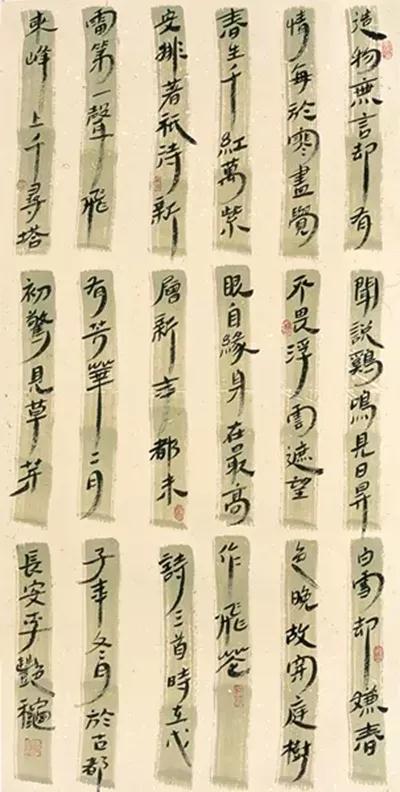 造物無言却有
情每於寒盡覺
春生千紅萬紫
安排著祇待新
雷第一聲飛
來峰上千尋塔
聞說鷄鳴見日昇
不畏浮雲遮望
眼自緣身在最高
層新年都未
有芳華二月
初驚見草芽
白雪却嫌春
色晚故穿庭樹
作飛花
詩三首時在戊
子年冬月於古都
長安平